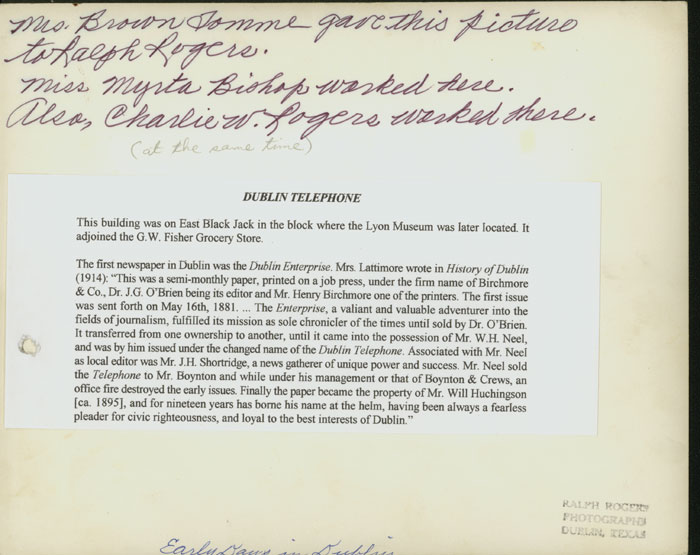 Mrs. Brown Tomme gave this picture
to Ralph Rogers.
Miss Myrta Bishop worked here.
Also, Charlie W. Rogers worked there.
(at the same time)
DUBLIN TELEPHONE
This building was on East Black Jack in the block where the Lyon Museum was later located. It
adjoined the G.W. Fisher Grocery Store.
The first newspaper in Dublin was the Dublin Enterprise. Mrs. Lattimore wrote in History of Dublin
(1914): “This was a semi-monthly paper, printed on a job press, under the firm name of Birchmore
& Co., Dr. J.G. O’Brien being its editor and Mr. Henry Birchmore one of the printers. The first issue
was sent forth on May 16th, 1881. ... The Enterprise, a valiant and valuable adventurer into the
fields of journalism, fulfilled its mission as sole chronicler of the times until sold by Dr. O’Brien.
It transferred from one ownership to another, until it came into the possession of Mr. W.H. Neel,
and was by him issued under the changed name of the Dublin Telephone. Associated with Mr. Neel
as local editor was Mr. J.H. Shortridge, a news gatherer of unique power and success. Mr. Neel sold
the Telephone to Mr. Boynton and while under his management or that of Boynton & Crews, an
office fire destroyed the early issues. Finally the paper became the property of Mr. Will Huchingson
[ca. 1895], and for nineteen years has borne his name at the helm, having been always a fearless
pleader for civic righteousness, and loyal to the best interests of Dublin.”
RALPH ROGERS
PHOTOGRAPHS
DUBLIN, TEXAS
Early Days in Dublin